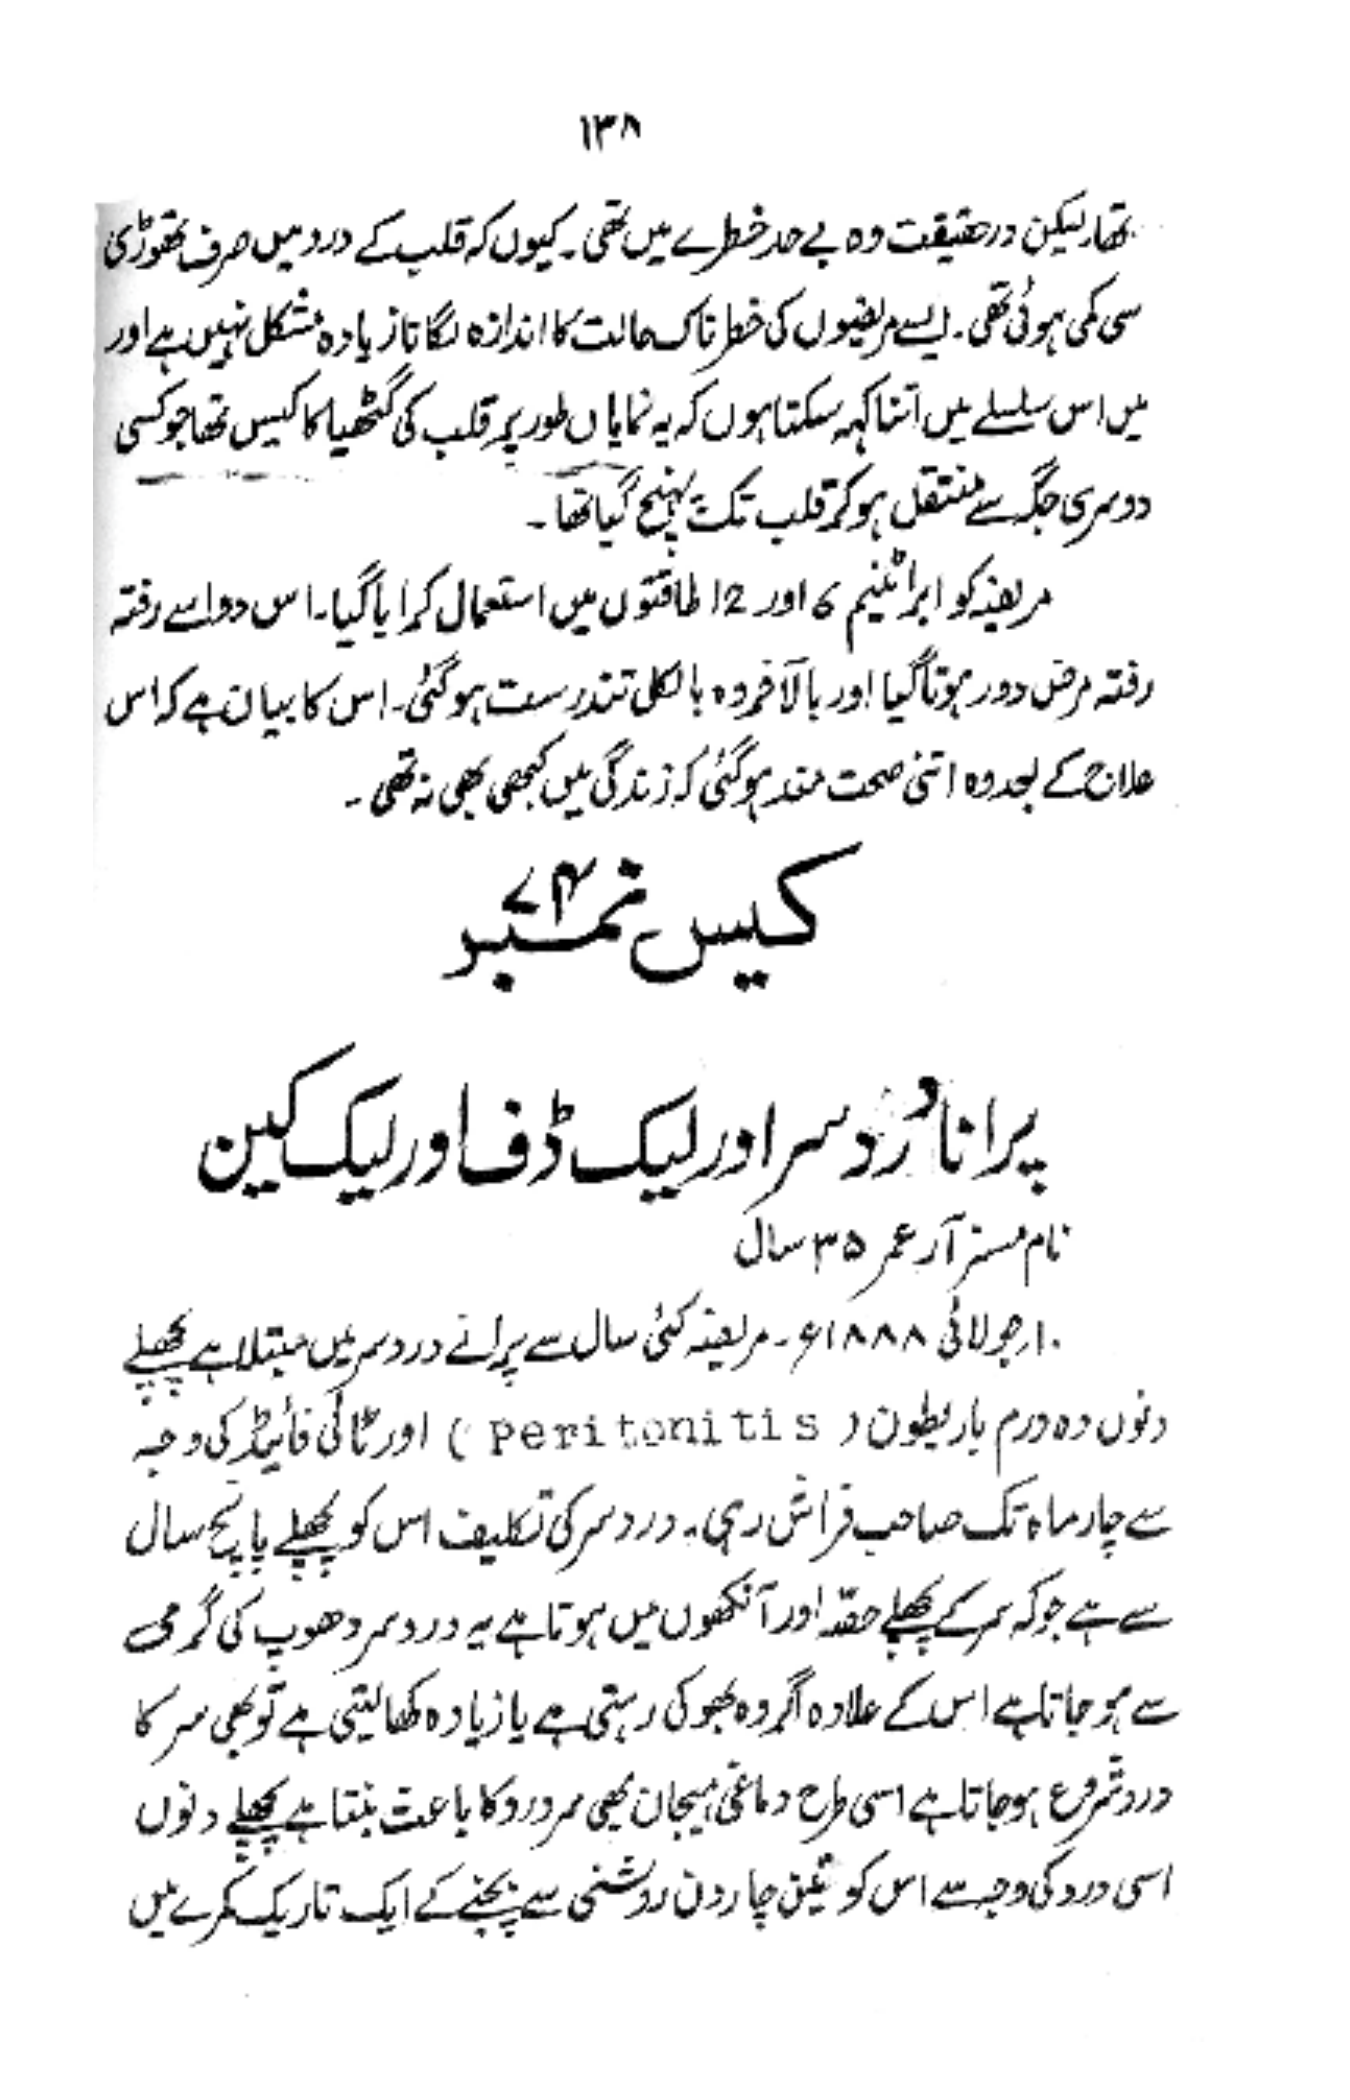 ۱۳۸
تھا۔ لیکن درحقیقت وہ بے حد خطرے میں تھی۔ کیوں کہ قلب کے درد میں صرف تھوڑی
سی کمی ہوئی تھی۔ ایسے مریضوں کی خطرناک حالت کا اندازہ لگانا زیادہ مشکل نہیں ہے اور
میں اس سلسلے میں اتنا کہہ سکتا ہوں کہ یہ نمایاں طور پر قلب کی گٹھیا کا کیس تھا جو کسی
دوسری جگہ سے منتقل ہو کر قلب تک پہنچ گیا تھا۔
مریضہ کو ابراٹینم 6 اور 12 طاقتوں میں استعمال کرایا گیا۔ اس دوا سے رفتہ
رفتہ مرض دور ہوتا گیا اور بالآخر وہ بالکل تندرست ہو گئی۔ اس کا بیان ہے کہ اس
علاج کے بعد وہ اتنی صحت مند ہو گئی کہ زندگی میں کبھی بھی نہ تھی۔
کیس نمبر ۷۴
پرانا دردِ سر اور لیک ڈف اور لیک کین
نام مسز آر عمر ۳۵ سال
۱۰ر جولائی ۱۸۸۸ء۔ مریضہ کئی سال سے پرانے درد سر میں مبتلا ہے پچھلے
دنوں وہ ورم باریطون (peritonitis) اور ٹائی فائیڈ کی وجہ
سے چار ماہ تک صاحب فراش رہی۔ درد سر کی تکلیف اس کو پچھلے پانچ سال
سے ہے جو کہ سر کے پچھلے حصّہ اور آنکھوں میں ہوتا ہے یہ درد سر دھوپ کی گرمی
سے ہو جاتا ہے اس کے علاوہ اگر وہ بھوکی رہتی ہے یا زیادہ کھا لیتی ہے تو بھی سر کا
درد شروع ہو جاتا ہے اسی طرح دماغی ہیجان بھی سر درد کا باعث بنتا ہے پچھلے دنوں
اسی درد کی وجہ سے اس کو تین چار دن روشنی سے بچنے کے ایک تاریک کمرے میں